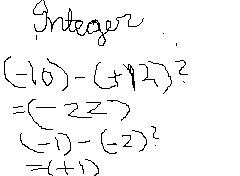 Integer
(-10)-(+12)?
=(-22)
(-1)-(-2)?
=(+1)